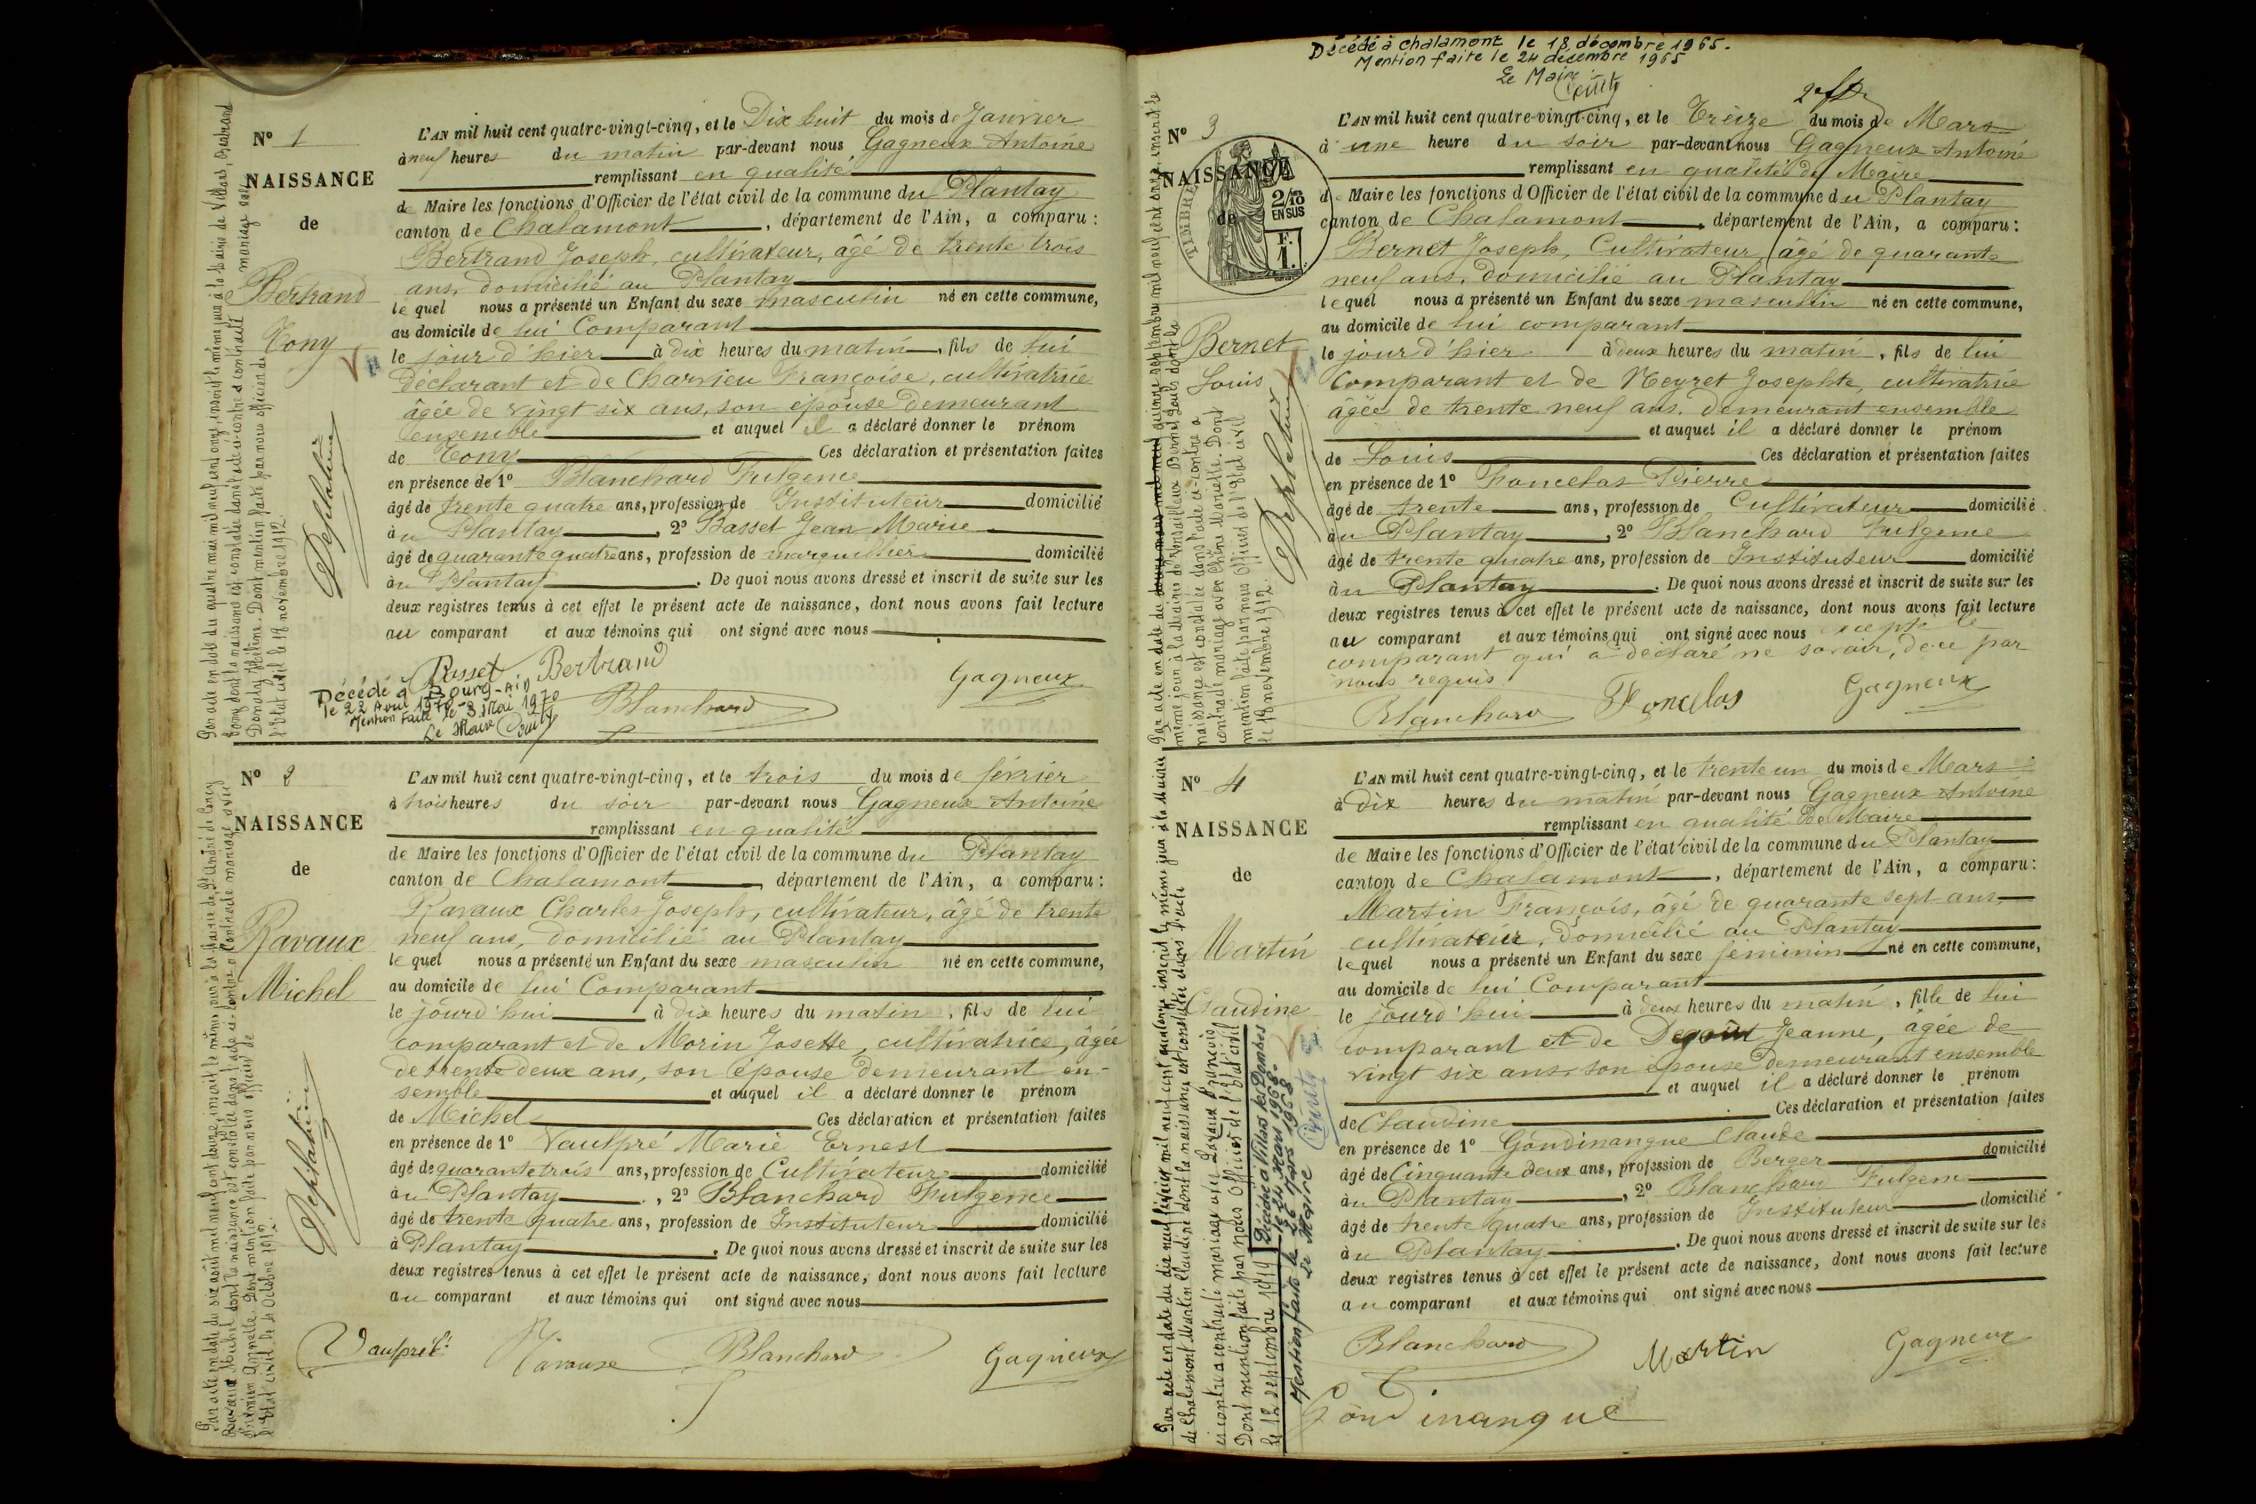 N° 1
NAISSANCE
de
Bertrand
Tony
L'AN mil huit cent quatre-vingt-cinq, et le Dix huit du mois de Janvier
à neuf heures du matin par-devant nous Gagneux Antoine
remplissant en qualité
de Maire les fonctions d'Officier de l'état civil de la commune du Plantay
canton de Chalamont, département de l'Ain, a comparu :
Bertrand Joseph, cultivateur, âgé de trente trois
ans, domicilié au Plantay
lequel nous a présenté un Enfant du sexe masculin né en cette commune,
au domicile de lui Comparant
le jour d'hier à dix heures du matin, fils de lui
déclarant et de Charvieu Françoise, cultivatrice
âgée de vingt six ans, son épouse demeurant
ensemble et auquel il a déclaré donner le prénom
de Tony Ces déclaration et présentation faites
en présence de 1° Blanchard Fulgence
âgé de trente quatre ans, profession de Instituteur domicilié
au Plantay, 2° Basset Jean Marie
âgé de quarante quatre ans, profession de marguillier domicilié
au Plantay. De quoi nous avons dressé et inscrit de suite sur les
deux registres tenus à cet effet le présent acte de naissance, dont nous avons fait lecture
au comparant et aux témoins qui ont signé avec nous
Basset Bertrand Gagneux
Blanchard
Décédé à Bourg-Ain
le 22 Avril 1970
Mention faite le 3 Mai 1970
Le Maire
Par acte en date du quatre mai mil neuf cent onze, inscrit le même jour à la Mairie de Villars, Bertrand
Tony dont la naissance est constatée dans l'acte ci-contre a contracté mariage avec
Hélène. Dont mention faite par nous officier de
l'Etat civil le 18 novembre 1912.
N° 2
NAISSANCE
de
Ravaux
Michel
L'AN mil huit cent quatre-vingt-cinq, et le trois du mois de février
à trois heures du soir par-devant nous Gagneux Antoine
remplissant en qualité
de Maire les fonctions d'Officier de l'état civil de la commune du Plantay
canton de Chalamont, département de l'Ain, a comparu :
Ravaux Charles Joseph, cultivateur, âgé de trente
neuf ans, domicilié au Plantay
lequel nous a présenté un Enfant du sexe masculin né en cette commune,
au domicile de lui Comparant
le jourd'hui à dix heures du matin, fils de lui
comparant et de Morin Josette, cultivatrice, âgée
de trente deux ans, son épouse demeurant en-
semble et auquel il a déclaré donner le prénom
de Michel Ces déclaration et présentation faites
en présence de 1° Vaulpré Marie Ernest
âgé de quarante trois ans, profession de Cultivateur domicilié
au Plantay, 2° Blanchard Fulgence
âgé de trente quatre ans, profession de Instituteur domicilié
à Plantay. De quoi nous avons dressé et inscrit de suite sur les
deux registres tenus à cet effet le présent acte de naissance, dont nous avons fait lecture
au comparant et aux témoins qui ont signé avec nous
Vaulpré Ravaux Blanchard Gagneux
Par acte en date du six août mil neuf cent douze, inscrit le même jour à la Mairie de St André de Corcy
Ravaux Michel dont la naissance est constatée dans l'acte ci-contre a contracté mariage avec
Annette. Dont mention faite par nous officier de
l'Etat civil le Octobre 1912.
Décédé à Chalamont le 18 décembre 1965.
Mention faite le 24 décembre 1965
Le Maire
N° 3
NAISSANCE
de
TIMBRE
2/10
EN SUS
F.
1.
Bernet
Louis
L'AN mil huit cent quatre-vingt-cinq, et le Treize du mois de Mars
à une heure du soir par-devant nous Gagneux Antoine
remplissant en qualité de Maire
de Maire les fonctions d'Officier de l'état civil de la commune du Plantay
canton de Chalamont, département de l'Ain, a comparu :
Bernet Joseph, Cultivateur, âgé de quarante
neuf ans, domicilié au Plantay
lequel nous a présenté un Enfant du sexe masculin né en cette commune,
au domicile de lui comparant
le jour d'hier à deux heures du matin, fils de lui
Comparant et de Neyret Josephte, cultivatrice
âgée de trente neuf ans. demeurant ensemble
et auquel il a déclaré donner le prénom
de Louis Ces déclaration et présentation faites
en présence de 1° Foncelas Pierre
âgé de trente ans, profession de Cultivateur domicilié
au Plantay, 2° Blanchard Fulgence
âgé de trente quatre ans, profession de Instituteur domicilié
au Plantay. De quoi nous avons dressé et inscrit de suite sur les
deux registres tenus à cet effet le présent acte de naissance, dont nous avons fait lecture
au comparant et aux témoins qui ont signé avec nous excepté le
comparant qui a déclaré ne savoir, de ce par
nous requis
Blanchard Foncelas Gagneux
naissance est constatée dans l'acte ci-contre a
contracté mariage avec Chêne Mariette. Dont
mention faite par nous Officier de l'Etat civil
le 18 novembre 1912.
N° 4
NAISSANCE
de
Martin
Claudine
L'AN mil huit cent quatre-vingt-cinq, et le trente un du mois de Mars
à Dix heures du matin par-devant nous Gagneux Antoine
remplissant en qualité de Maire
de Maire les fonctions d'Officier de l'état civil de la commune du Plantay
canton de Chalamont, département de l'Ain, a comparu :
Martin François, âgé de quarante sept ans
cultivateur, domicilié au Plantay
lequel nous a présenté un Enfant du sexe féminin né en cette commune,
au domicile de lui Comparant
le jourd'hui à deux heures du matin, fille de lui
comparant et de Degout Jeanne, âgée de
vingt six ans, son épouse demeurant ensemble
et auquel il a déclaré donner le prénom
de Claudine Ces déclaration et présentation faites
en présence de 1° Gondinangue Claude
âgé de Cinquante deux ans, profession de Berger domicilié
au Plantay, 2° Blanchard Fulgence
âgé de trente quatre ans, profession de Instituteur domicilié
au Plantay. De quoi nous avons dressé et inscrit de suite sur les
deux registres tenus à cet effet le présent acte de naissance, dont nous avons fait lecture
au comparant et aux témoins qui ont signé avec nous
Blanchard Martin Gagneux
Gondinangue
Par acte en date du dix neuf février mil neuf cent quatorze inscrit le même jour à la Mairie
de Chalamont Martin Claudine dont la naissance est constatée dans l'acte
ci-contre a contracté mariage avec Ravaux François
Dont mention faite par nous Officier de l'Etat civil
le 12 septembre 1914
Décédée à Villars les Dombes
le 24 Mars 1968.
Mention faite le 26 Mars 1968
Le Maire